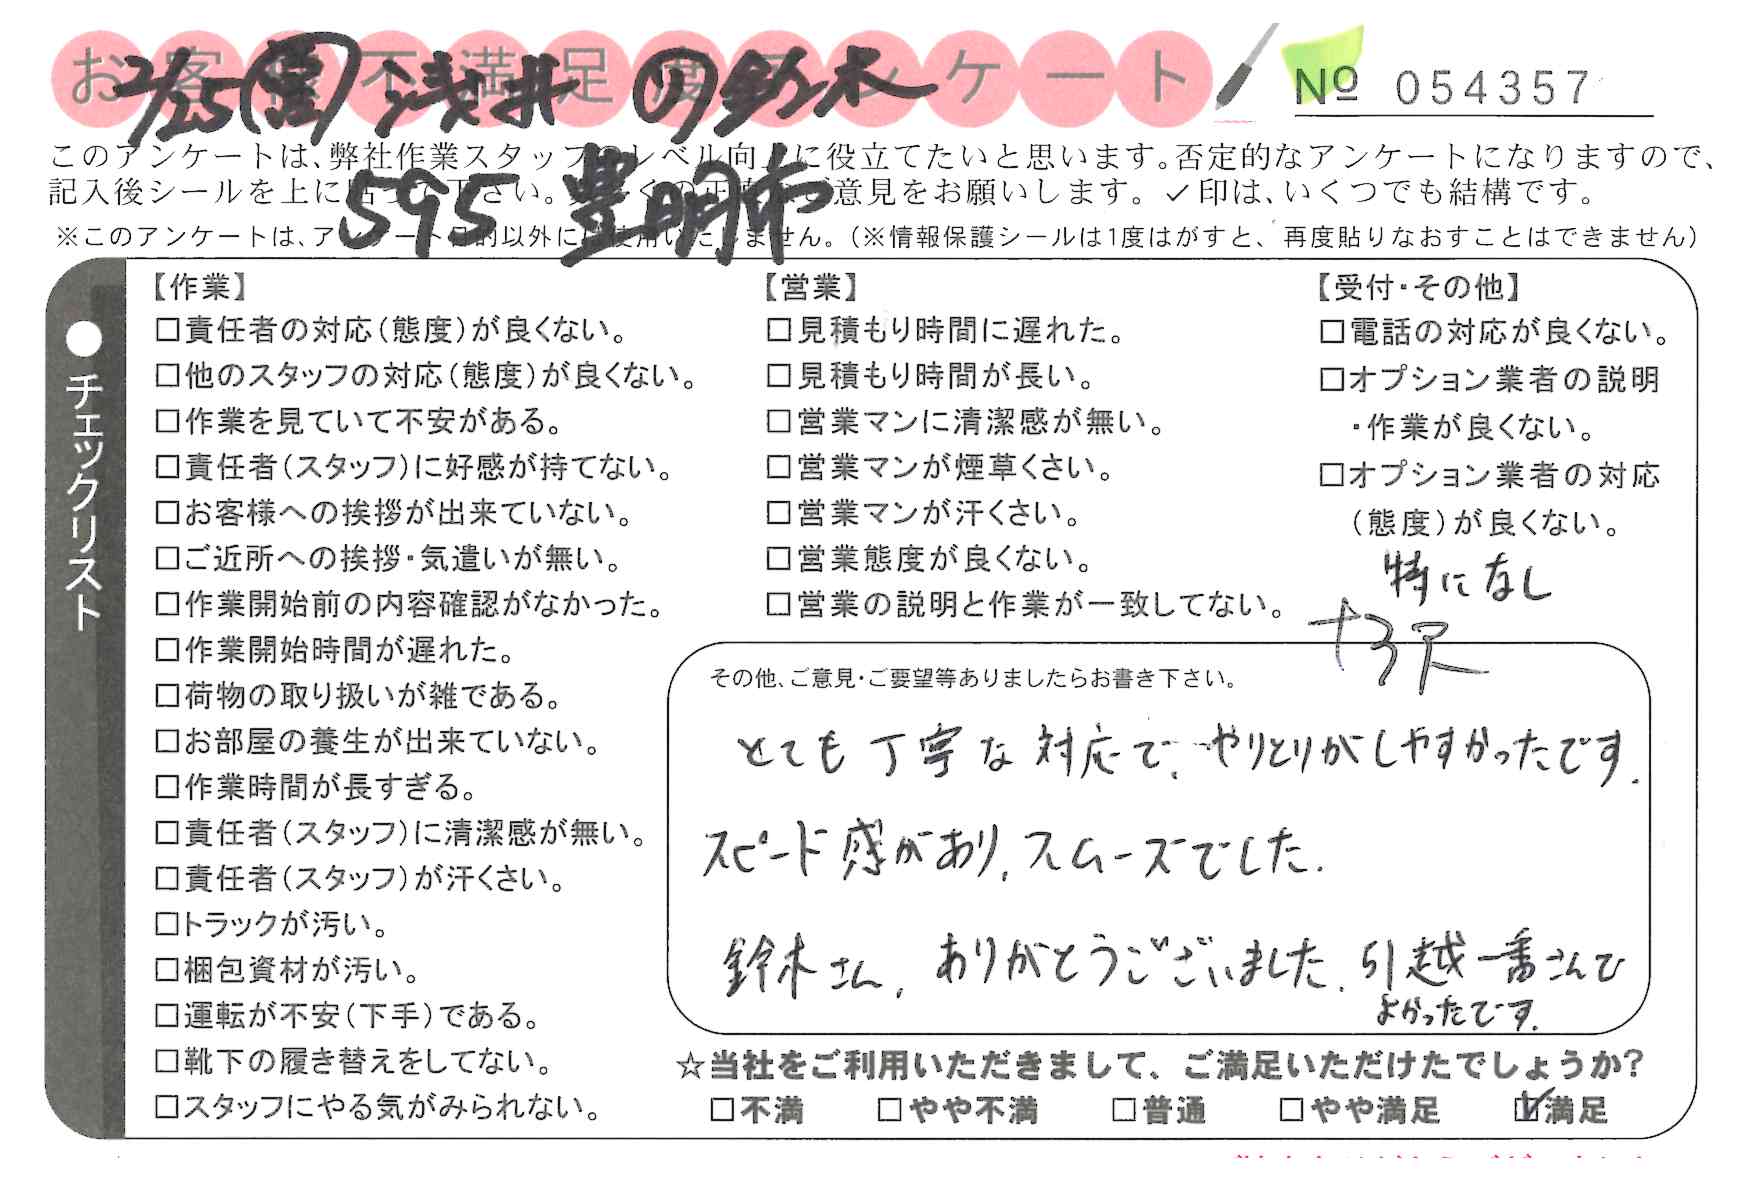 お客様不満足度アンケート
№ 054357
2/25(営) 浅井 の 鈴木
595 豊明市
このアンケートは、弊社作業スタッフのレベル向上に役立てたいと思います。否定的なアンケートになりますので、
記入後シールを上に貼って下さい。多くの正直なご意見をお願いします。✓印は、いくつでも結構です。
※このアンケートは、アンケート目的以外には使用いたしません。(※情報保護シールは1度はがすと、再度貼りなおすことはできません)
●チェックリスト
【作業】
□責任者の対応(態度)が良くない。
□他のスタッフの対応(態度)が良くない。
□作業を見ていて不安がある。
□責任者(スタッフ)に好感が持てない。
□お客様への挨拶が出来ていない。
□ご近所への挨拶・気遣いが無い。
□作業開始前の内容確認がなかった。
□作業開始時間が遅れた。
□荷物の取り扱いが雑である。
□お部屋の養生が出来ていない。
□作業時間が長すぎる。
□責任者(スタッフ)に清潔感が無い。
□責任者(スタッフ)が汗くさい。
□トラックが汚い。
□梱包資材が汚い。
□運転が不安(下手)である。
□靴下の履き替えをしてない。
□スタッフにやる気がみられない。
【営業】
□見積もり時間に遅れた。
□見積もり時間が長い。
□営業マンに清潔感が無い。
□営業マンが煙草くさい。
□営業マンが汗くさい。
□営業態度が良くない。
□営業の説明と作業が一致してない。
【受付・その他】
□電話の対応が良くない。
□オプション業者の説明
・作業が良くない。
□オプション業者の対応
(態度)が良くない。
特になし
その他、ご意見・ご要望等ありましたらお書き下さい。
とても丁寧な対応で、やりとりがしやすかったです.
スピード感があり、スムーズでした.
鈴木さん、ありがとうございました. 引越一番さんで
よかったです.
☆当社をご利用いただきまして、ご満足いただけたでしょうか?
□不満 □やや不満 □普通 □やや満足 ☑満足